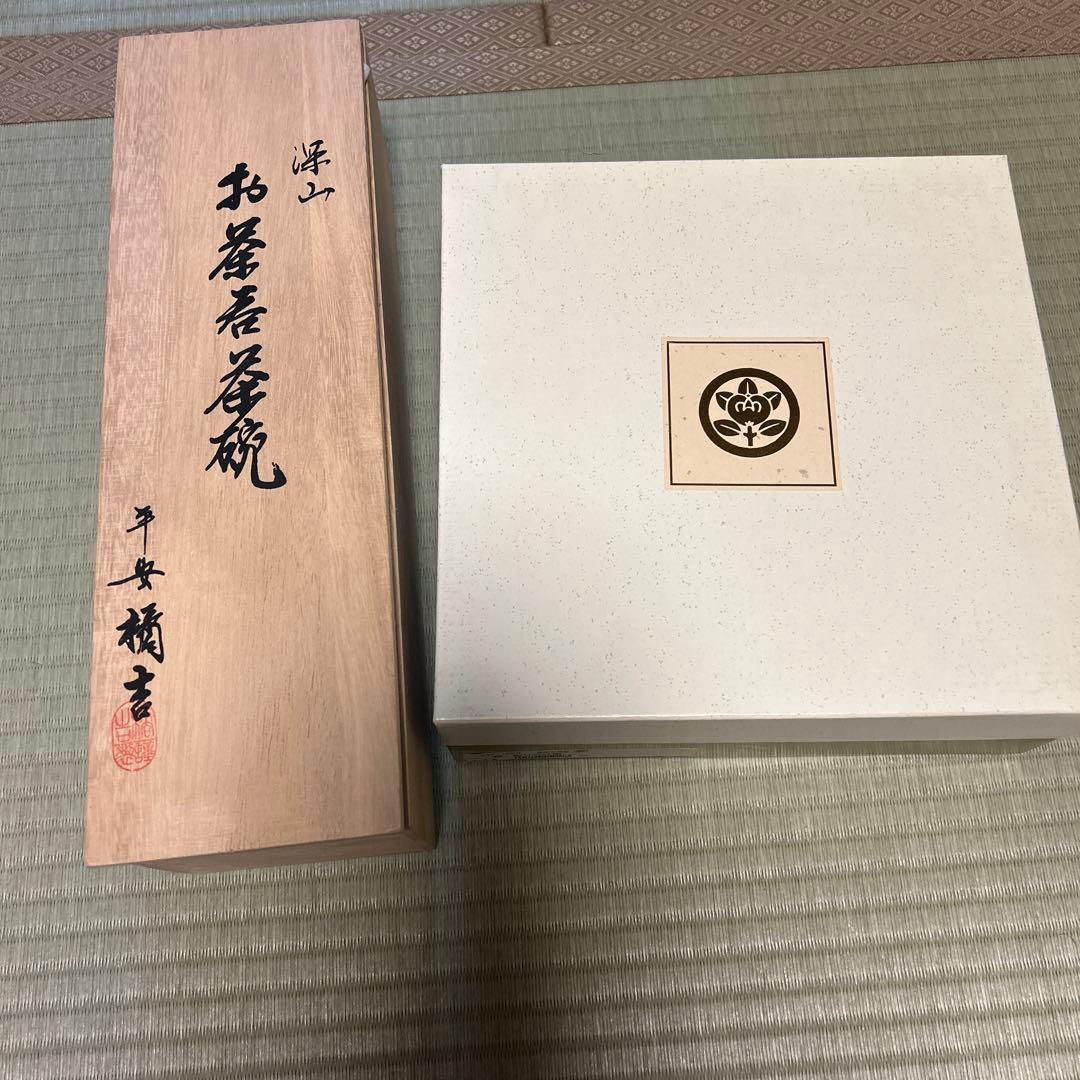 深山
お茶呑茶碗
平安 橘吉